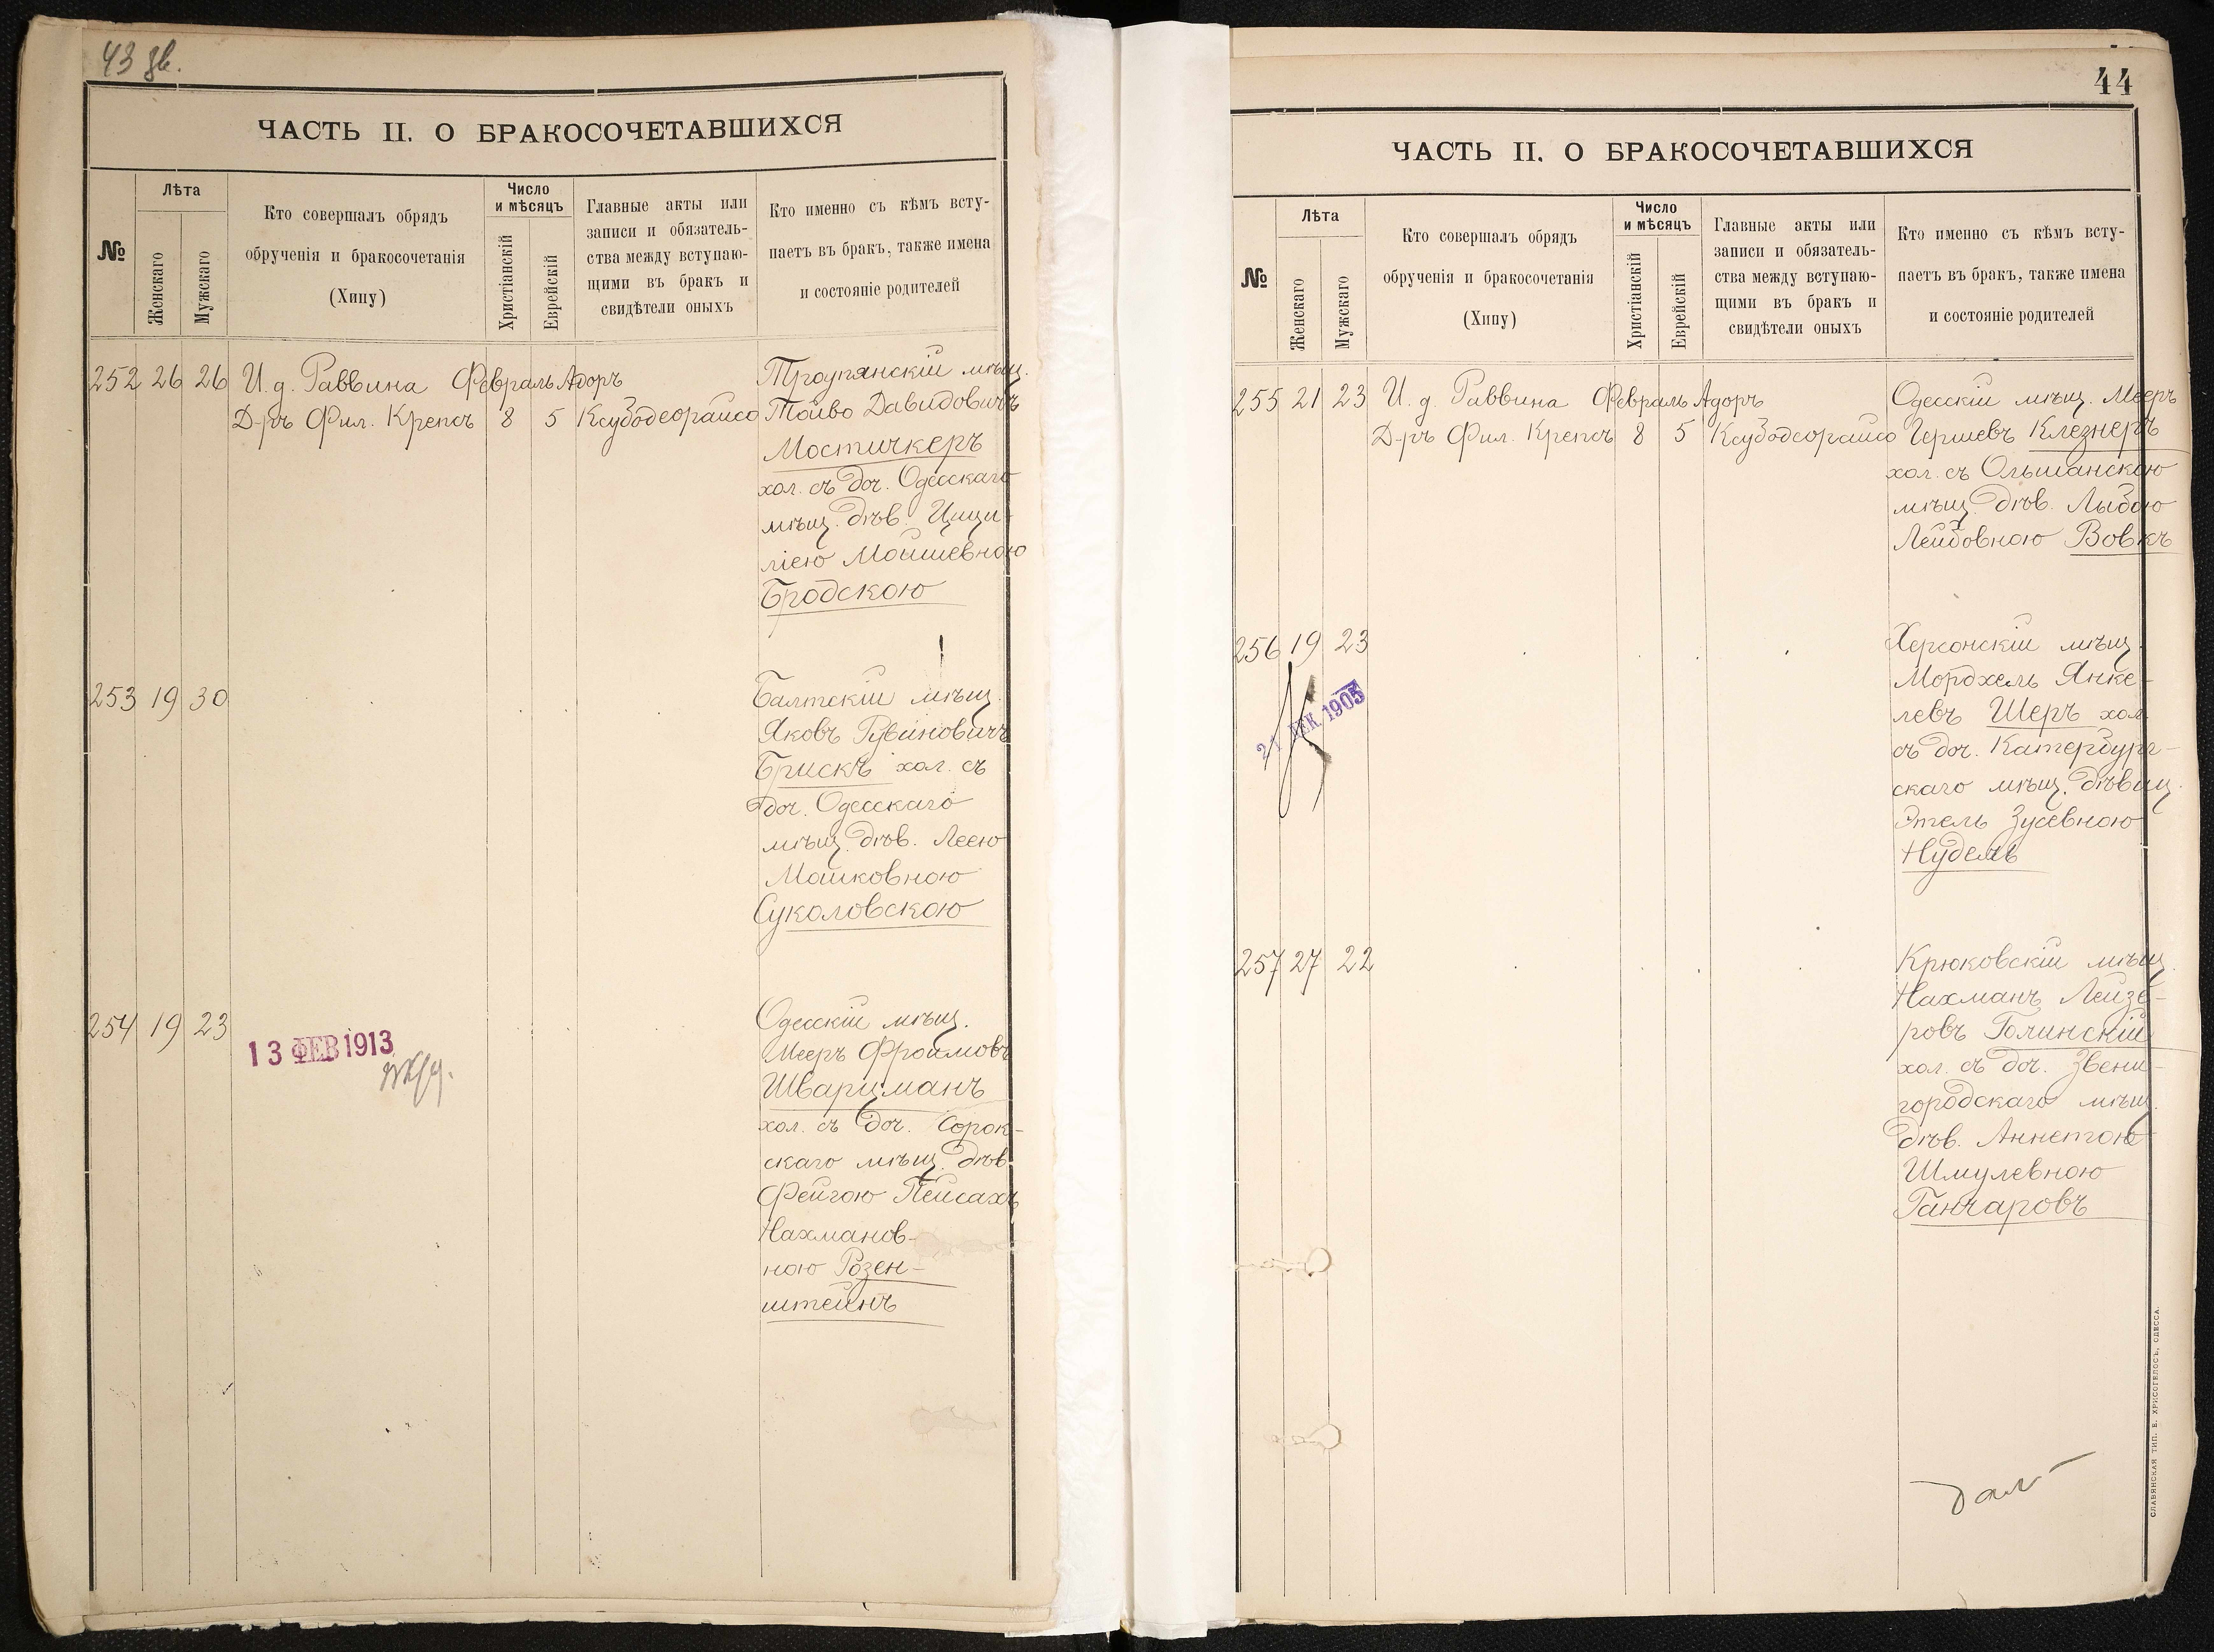 43 зв.
ЧАСТЬ II. О БРАКОСОЧЕТАВШИХСЯ
№
Лѣта
Женскаго
Мужскаго
Кто совершалъ обрядъ
обрученія и бракосочетанія
(Хипу)
Число
и мѣсяцъ
Христіанскій
Еврейскій
Главные акты или
записи и обязатель-
ства между вступаю-
щими въ бракъ и
свидѣтели оныхъ
Кто именно съ кѣмъ всту-
паетъ въ бракъ, также имена
и состояніе родителей
252 26 26 И. д. Раввина Февраль Адоръ
Д-ръ Фил. Крепсъ 8 5 Ксубодеорайсо
Троупянскій мѣщ.
Тойво Давидовичъ
Мостичкеръ
хол. съ доч. Одесскаго
мѣщ. дѣв. Цици-
ліею Мошшевною
Бродскою
253 19 30
Балтскій мѣщ.
Яковъ Рувиновичъ
Брискъ хол. съ
доч. Одесскаго
мѣщ. дѣв. Леею
Мошковною
Суколовскою
254 19 23
13 ФЕВ 1913
Одесскій мѣщ.
Мееръ Фроимовъ
Шварцманъ
хол. съ доч. Сорок-
скаго мѣщ. дѣв.
Фейгою Пейсахъ
Нахманов-
ною Розен-
штейнъ
44
ЧАСТЬ II. О БРАКОСОЧЕТАВШИХСЯ
№
Лѣта
Женскаго
Мужскаго
Кто совершалъ обрядъ
обрученія и бракосочетанія
(Хипу)
Число
и мѣсяцъ
Христіанскій
Еврейскій
Главные акты или
записи и обязатель-
ства между вступаю-
щими въ бракъ и
свидѣтели оныхъ
Кто именно съ кѣмъ всту-
паетъ въ бракъ, также имена
и состояніе родителей
255 21 23 И. д. Раввина Февраль Адоръ
Д-ръ Фил. Крепсъ 8 5 Ксубодеорайсо
Одесскій мѣщ. Мееръ
Гершевъ Клезнеръ
хол. съ Ольшанскою
мѣщ. дѣв. Лыбою
Лейбовною Вовкъ
256 19 23
21 ДЕК. 1905
Херсонскій мѣщ.
Мордхель Янке-
левъ Шеръ хол.
съ доч. Катербург-
скаго мѣщ. дѣвиц.
Этель Зусевною
Нудель
257 27 22
Крюковскій мѣщ.
Нахманъ Лейзе-
ровъ Голинскій
хол. съ доч. Звени-
городскаго мѣщ.
дѣв. Аннетою
Шмулевною
Ганчаровъ
СЛАВЯНСКАЯ ТИП. Е. ХРИСОГЕЛОСЪ, ОДЕССА.